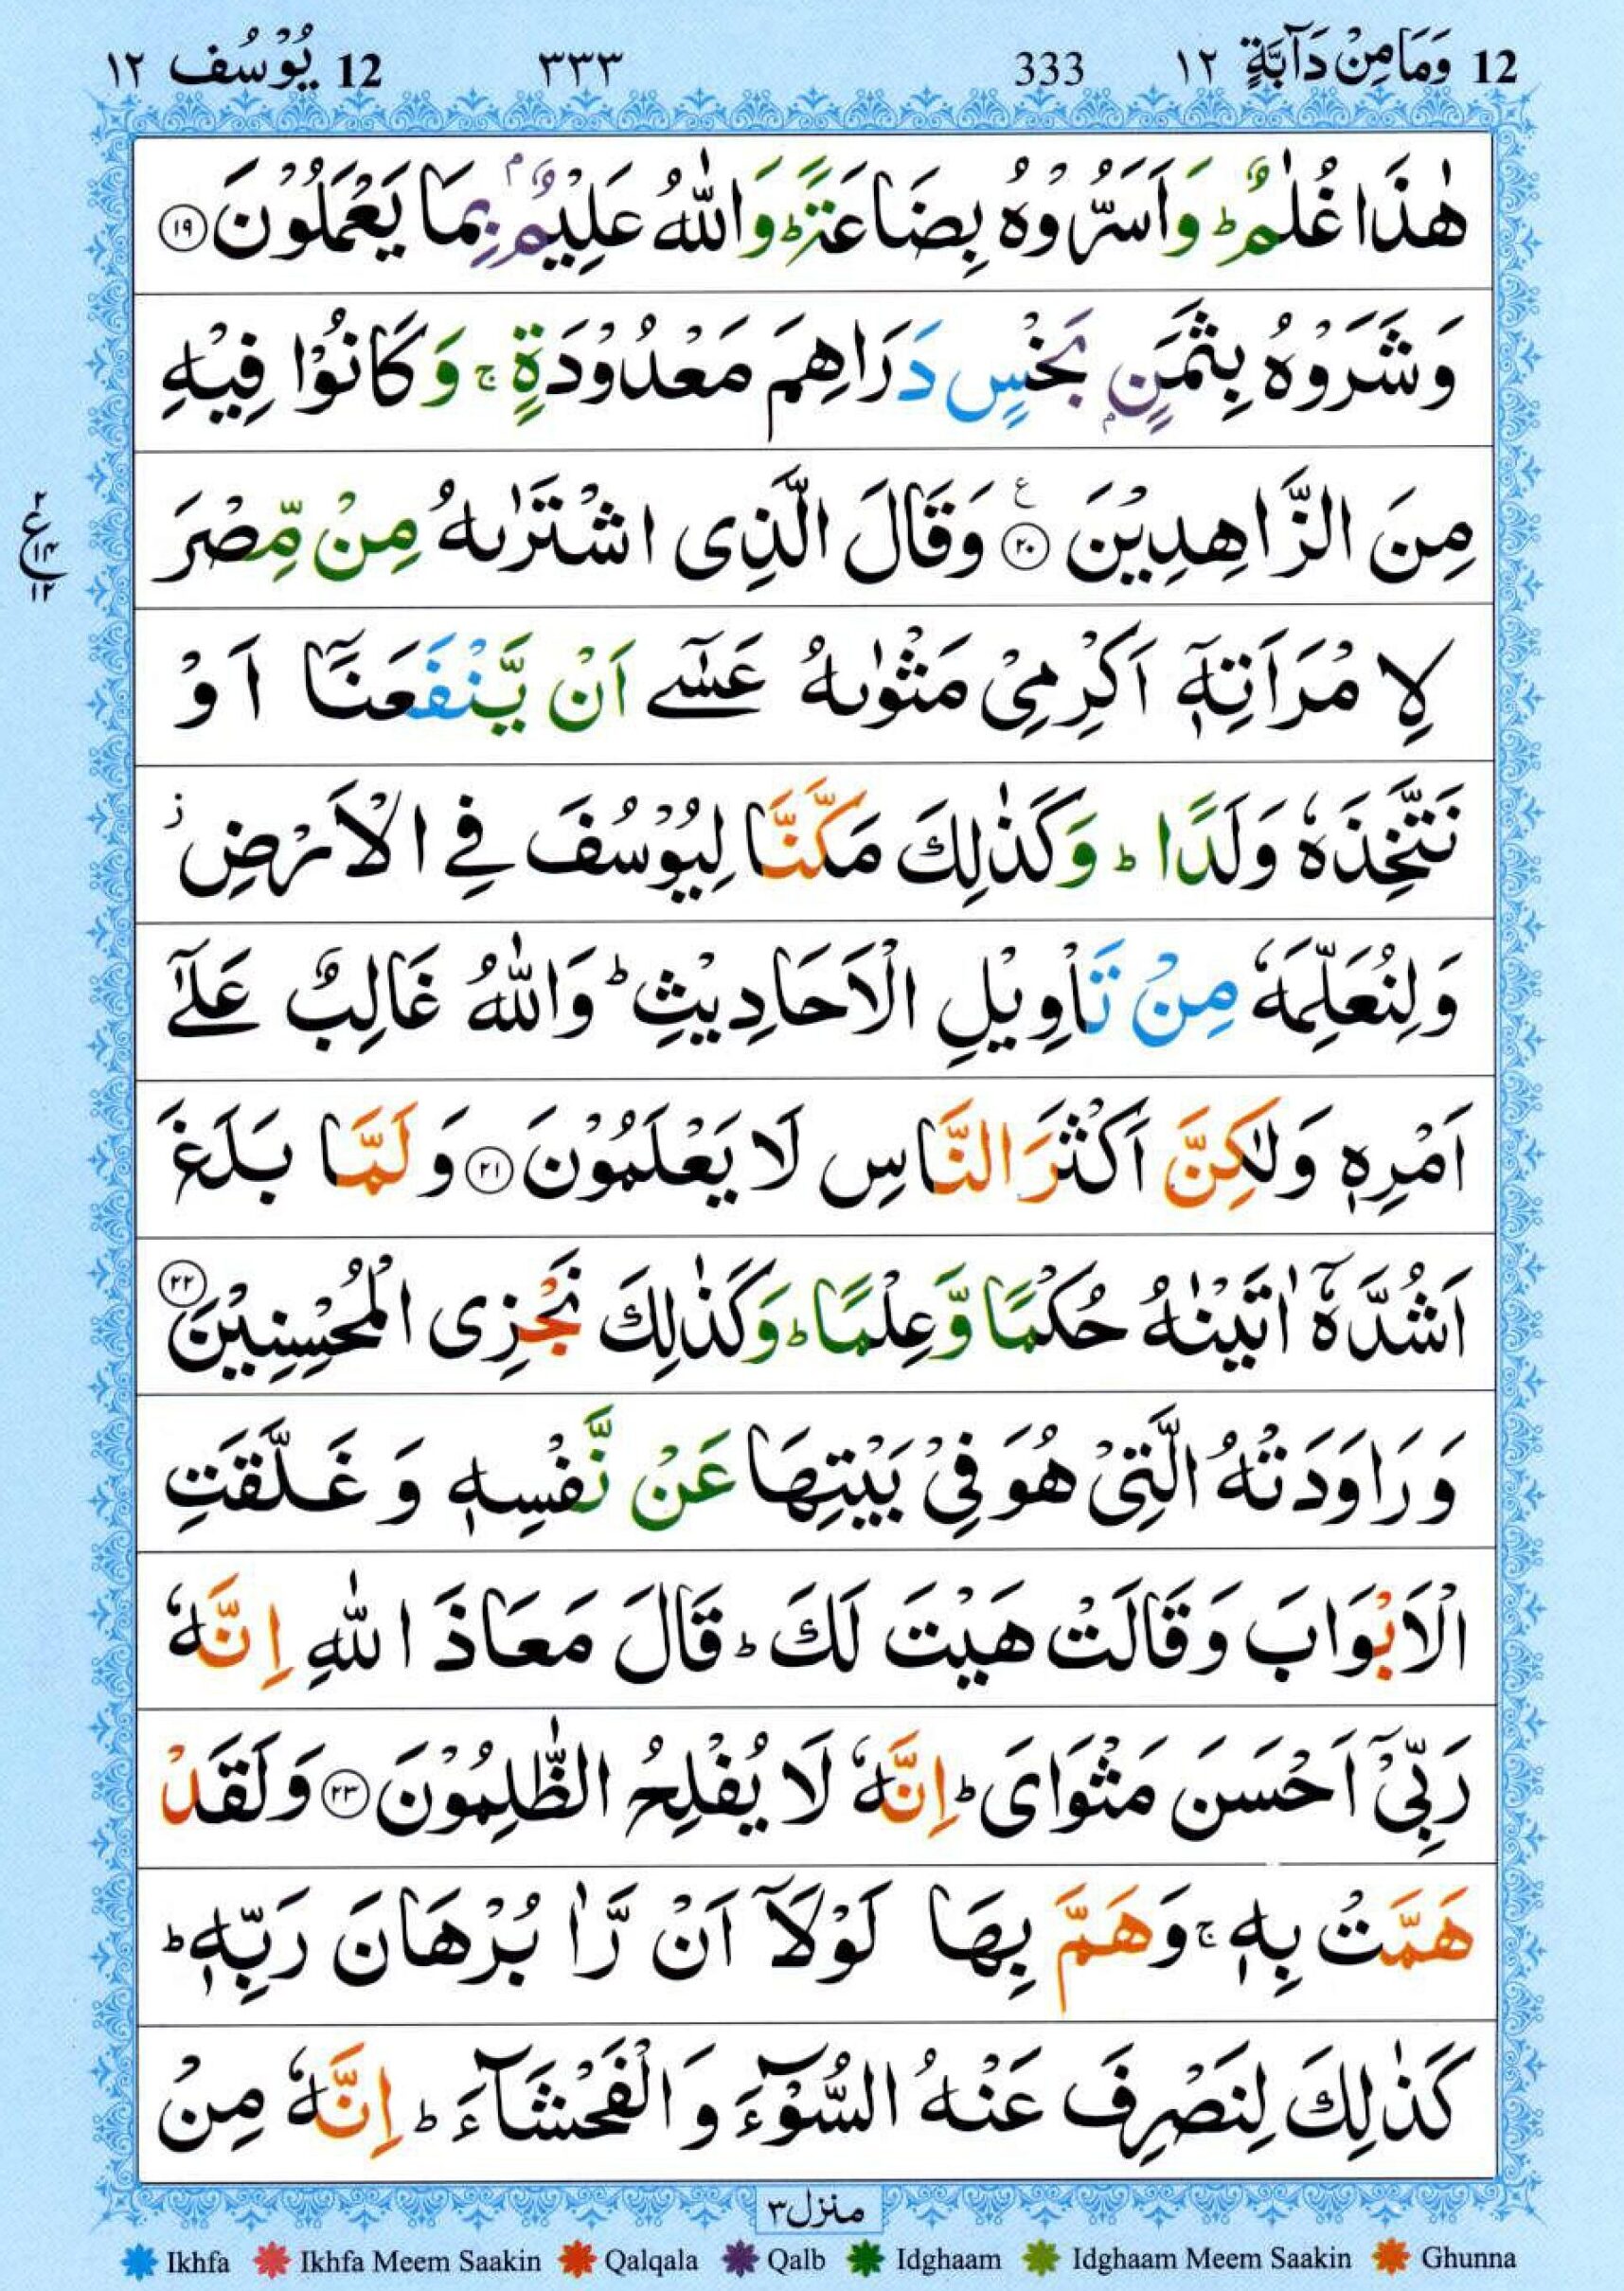 12 وَمَا مِنْ دَآبَّةٍ ١٢ 333 ٣٣٣ 12 يُوْسُف ١٢
هٰذَا غُلٰمٌ ؕ وَاَسَرُّوْهُ بِضَاعَةً ؕ وَاللّٰهُ عَلِيْمٌۢ بِمَا يَعْمَلُوْنَ ۝۱۹
وَشَرَوْهُ بِثَمَنٍۭ بَخْسٍ دَرَاهِمَ مَعْدُوْدَةٍ ۚ وَكَانُوْا فِيْهِ
مِنَ الزَّاهِدِيْنَ ۝۲۰ ع وَقَالَ الَّذِى اشْتَرٰىهُ مِنْ مِّصْرَ
لِا مْرَاَتِهٖۤ اَكْرِمِىْ مَثْوٰىهُ عَسٰٓے اَنْ يَّنْفَعَنَاۤ اَوْ
نَتَّخِذَهٗ وَلَدًا ؕ وَكَذٰلِكَ مَكَّنَّا لِيُوْسُفَ فِے الْاَرْضِ ز
وَلِنُعَلِّمَهٗ مِنْ تَاْوِيْلِ الْاَحَادِيْثِ ؕ وَاللّٰهُ غَالِبٌ عَلٰٓے
اَمْرِهٖ وَلٰكِنَّ اَكْثَرَ النَّاسِ لَا يَعْلَمُوْنَ ۝۲۱ وَ لَمَّا بَلَغَ
اَشُدَّهٗۤ اٰتَيْنٰهُ حُكْمًا وَّعِلْمًا ؕ وَكَذٰلِكَ نَجْزِى الْمُحْسِنِيْنَ ۝۲۲
وَ رَاوَدَتْهُ الَّتِىْ هُوَ فِىْ بَيْتِهَا عَنْ نَّفْسِهٖ وَ غَلَّقَتِ
الْاَبْوَابَ وَقَالَتْ هَيْتَ لَكَ ؕ قَالَ مَعَاذَ اللّٰهِ اِنَّهٗ
رَبِّىْۤ اَحْسَنَ مَثْوَاىَ ؕ اِنَّهٗ لَا يُفْلِحُ الظّٰلِمُوْنَ ۝۲۳ وَلَقَدْ
هَمَّتْ بِهٖ ۚ وَهَمَّ بِهَا لَوْلَاۤ اَنْ رَّاٰ بُرْهَانَ رَبِّهٖ ؕ
كَذٰلِكَ لِنَصْرِفَ عَنْهُ السُّوْٓءَ وَ الْفَحْشَآءَ ؕ اِنَّهٗ مِنْ
۲ ع ۱۴ ۱۲
منزل ٣
Ikhfa Ikhfa Meem Saakin Qalqala Qalb Idghaam Idghaam Meem Saakin Ghunna